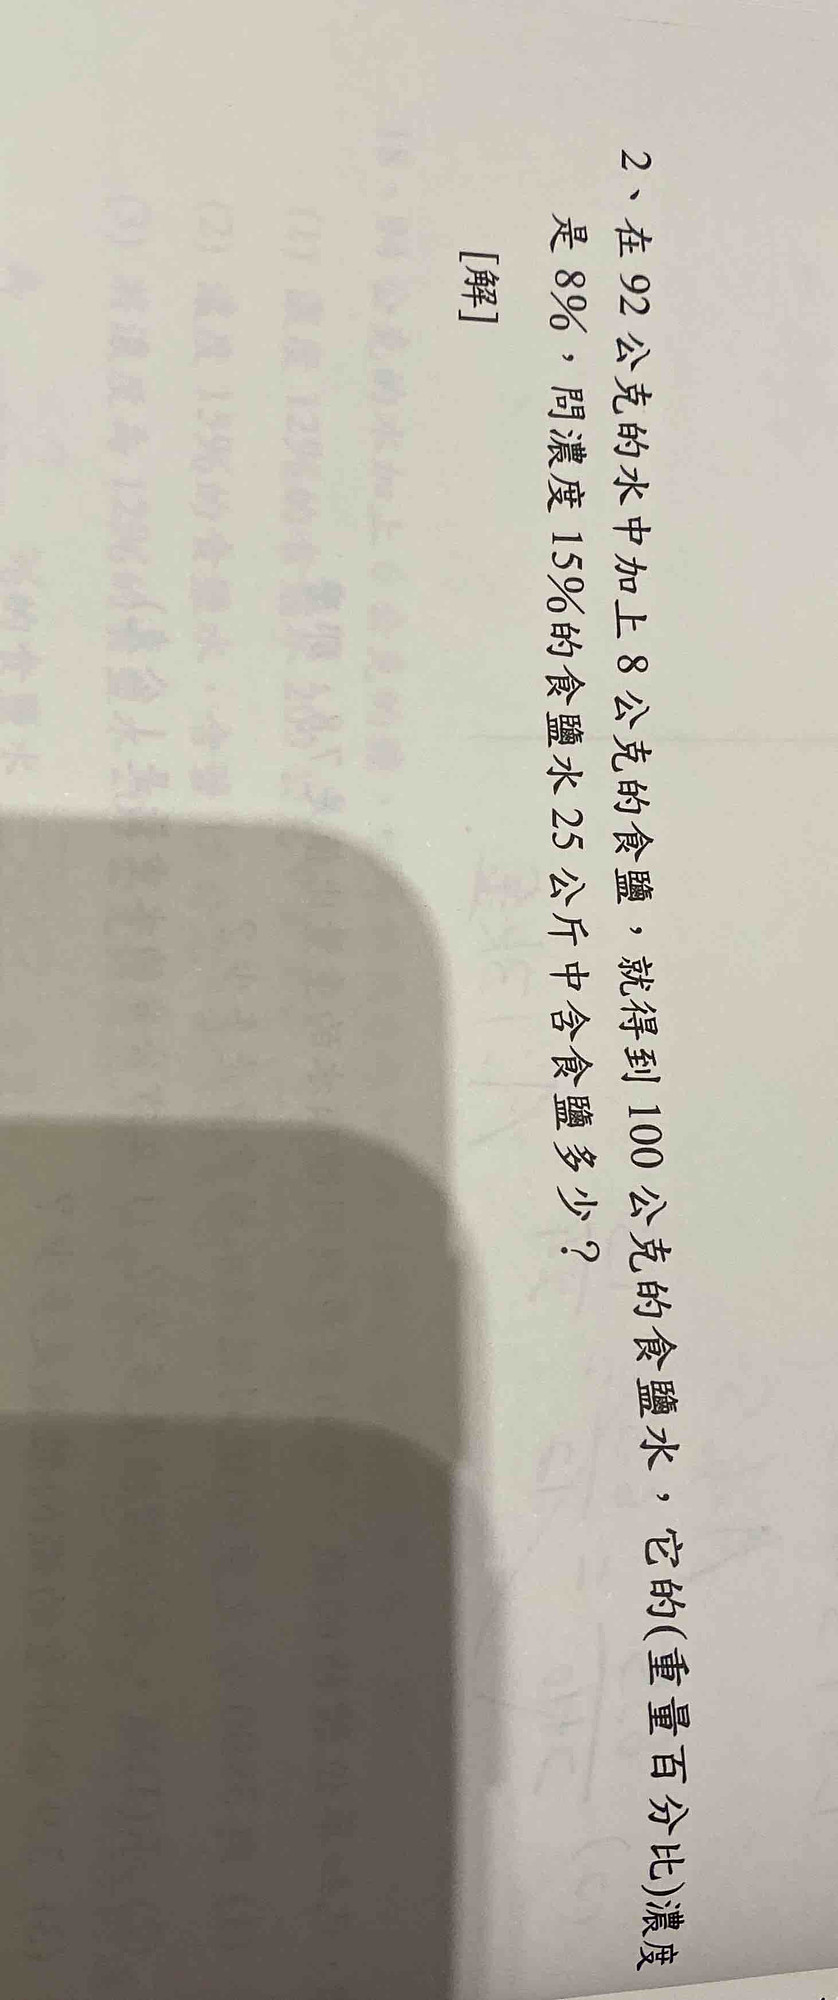 2、在 92 公克的水中加上 8 公克的食鹽，就得到 100 公克的食鹽水，它的(重量百分比)濃度
是 8%，問濃度 15%的食鹽水 25 公斤中含食鹽多少？
[解]